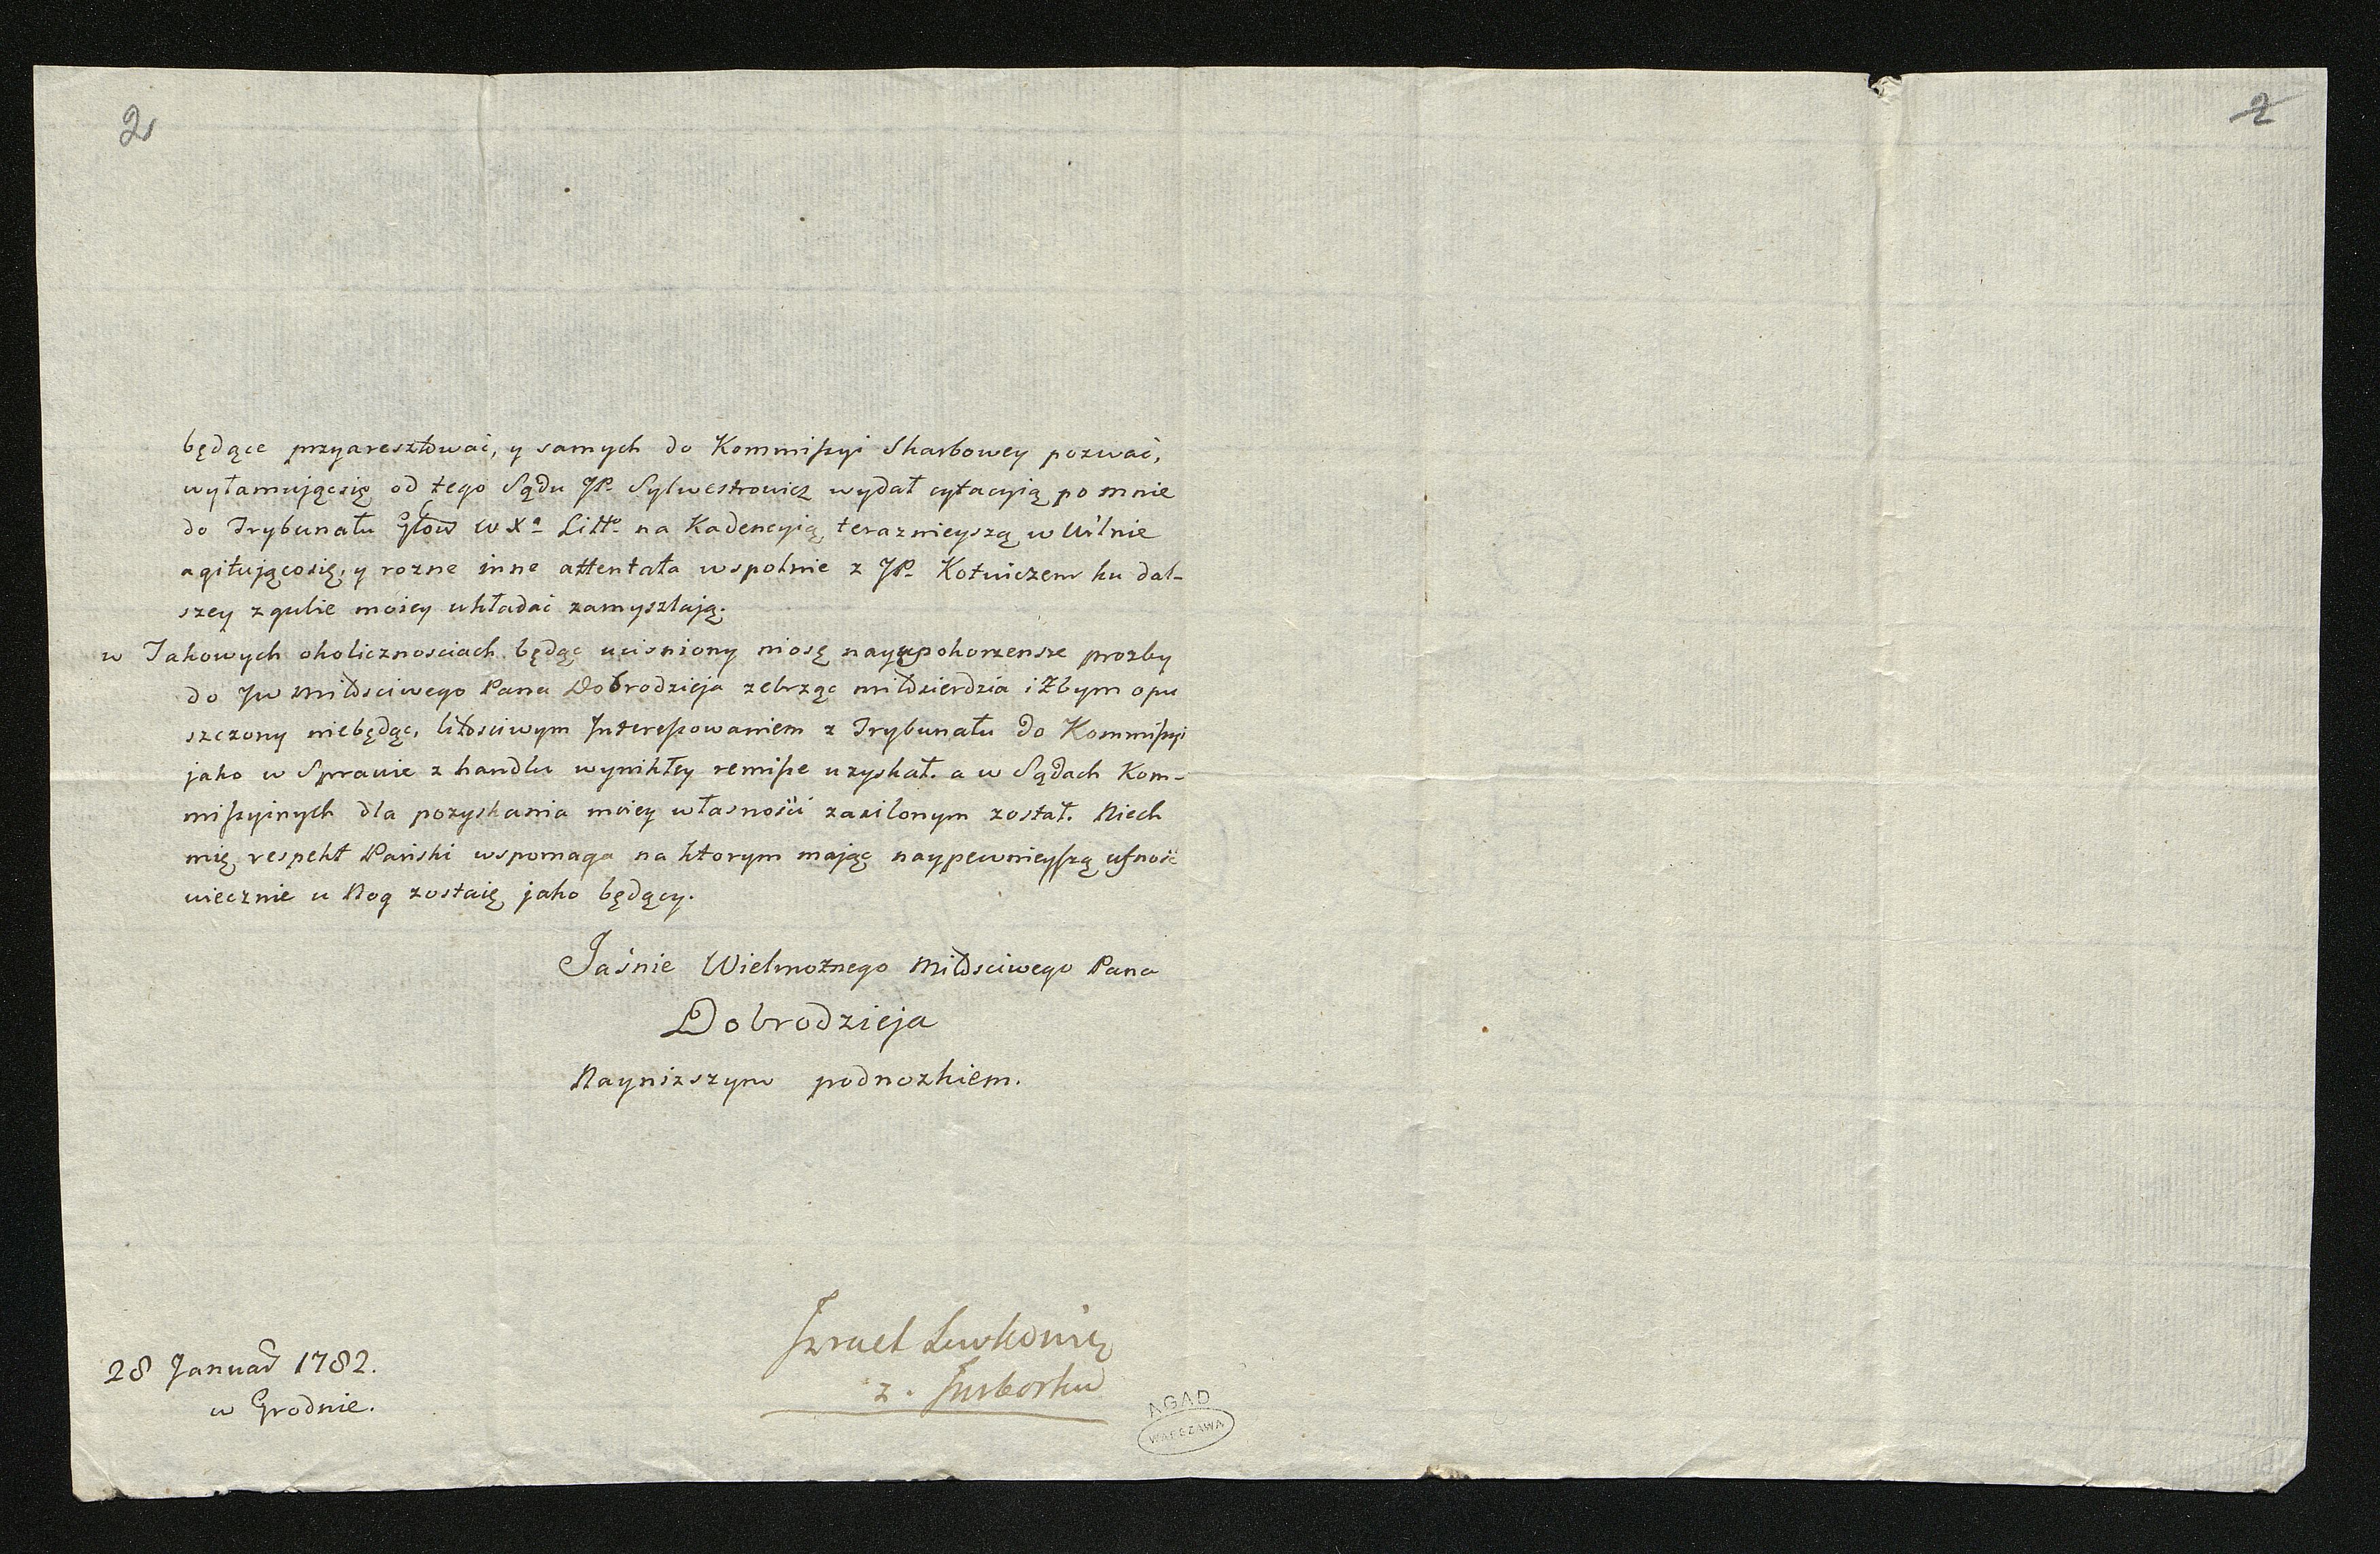 2
2
będące przyaresztować, y samych do Kommissyi Skarbowey pozwać,
wyłamującsię od tego Sądu JP. Sylwestrowicz wydał cytacyią po mnie
do Trybunału Głow W Xa Litto na Kadencyią teraznieyszą w Wilnie
agitującosię, y rozne inne attentata wspolnie z JP. Kotwiczem ku dal-
szey zgubie moiey układać zamyszlają.
w Takowych okolicznosciach będąc ucisniony niosę nayupokorzensze prozby
do JW Miłosciwego Pana Dobrodzieja zebrząc miłosierdzia iżbym opu
szczony niebędąc, litosciwym Interessowaniem z Trybunału do Kommissyi
jako w Sprawie z handlu wynikłey remisse uzyskał. a w Sądach Kom-
missyinych dla pozyskania moiey własności zasilonym został. Niech
mię respekt Pański wspomaga na ktorym mając naypewnieyszą ufność
wiecznie u Nog zostaię jako będący.
Jaśnie Wielmożnego Miłosciwego Pana
Dobrodzieja
Nayniższym podnozkiem.
Izrael Lewkowic
z. Jurborku
28 Januar 1782.
w Grodnie.
AGAD
WARSZAWA